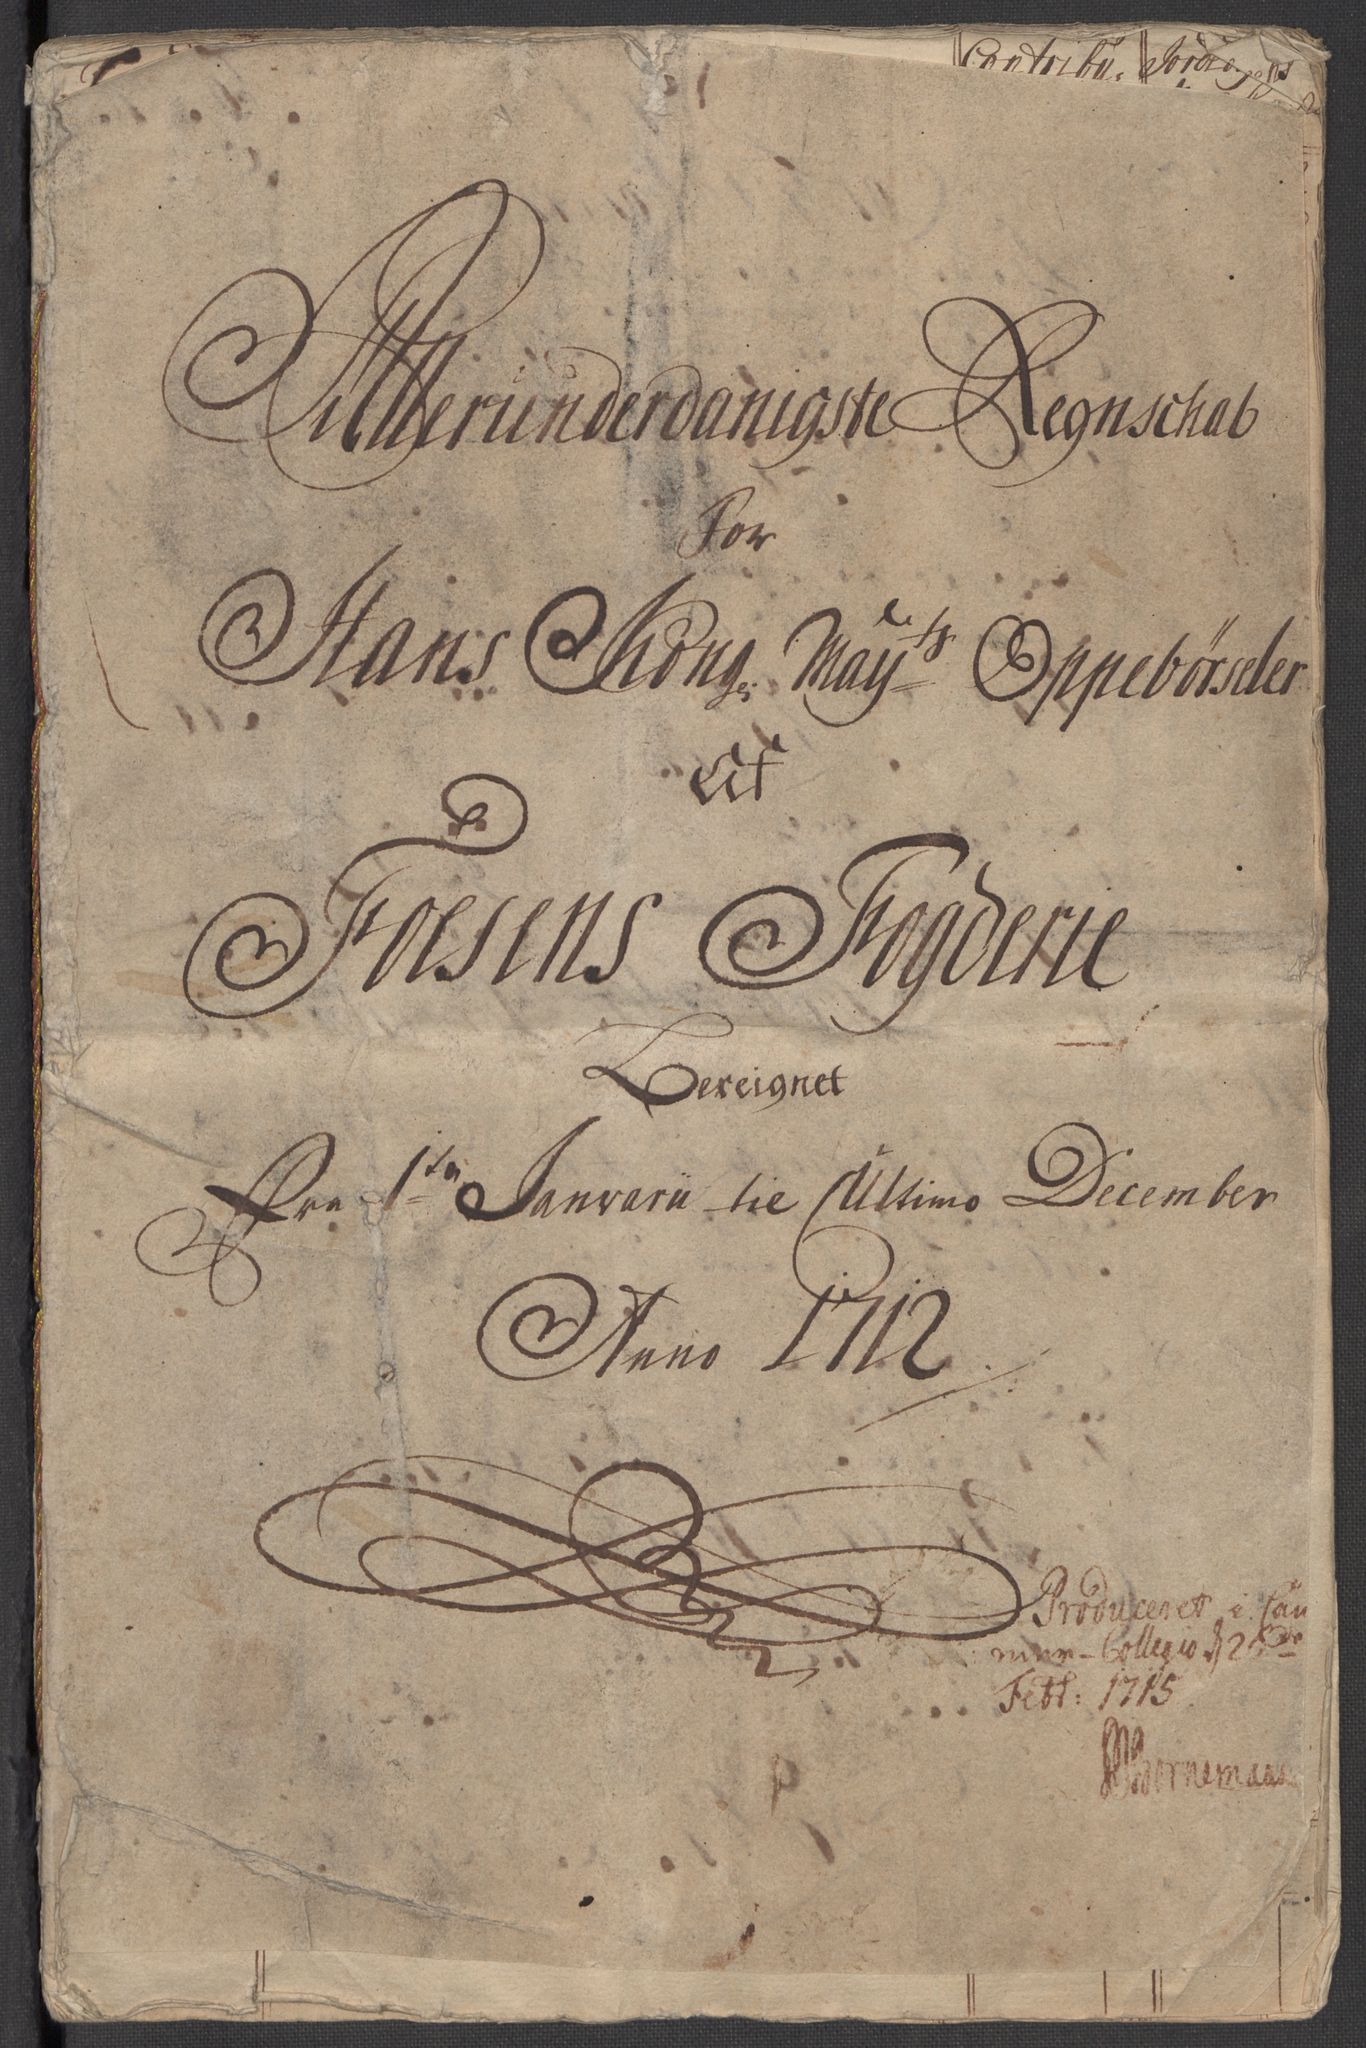 Contribu: Jordeg
Allerunderdanigste Regnschab
For
Hans Kong: Mayts Oppebörseler
Af
Foesens Fogderie
Bereignet
Fra 1ten Januarii tie Ultimo December
Anno 1712
Produceret i Cam
mer-Collegio d 26de
Febr: 1715
Bornemann